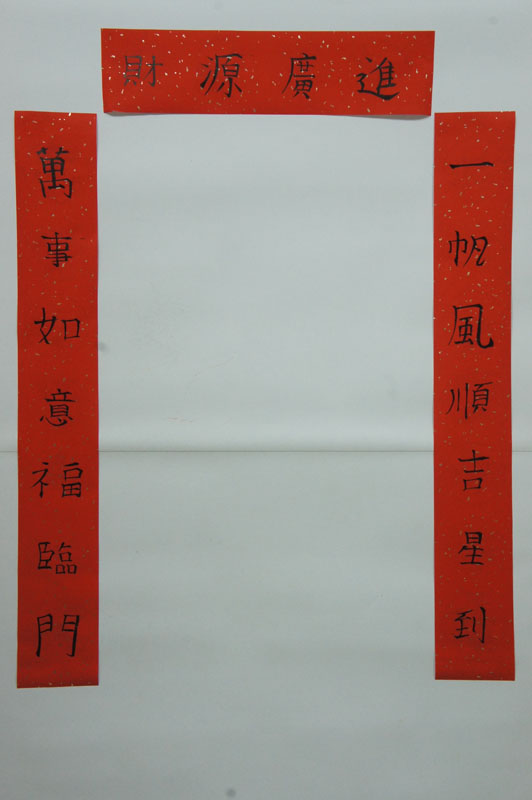 財源廣進
一帆風順吉星到
萬事如意福臨門